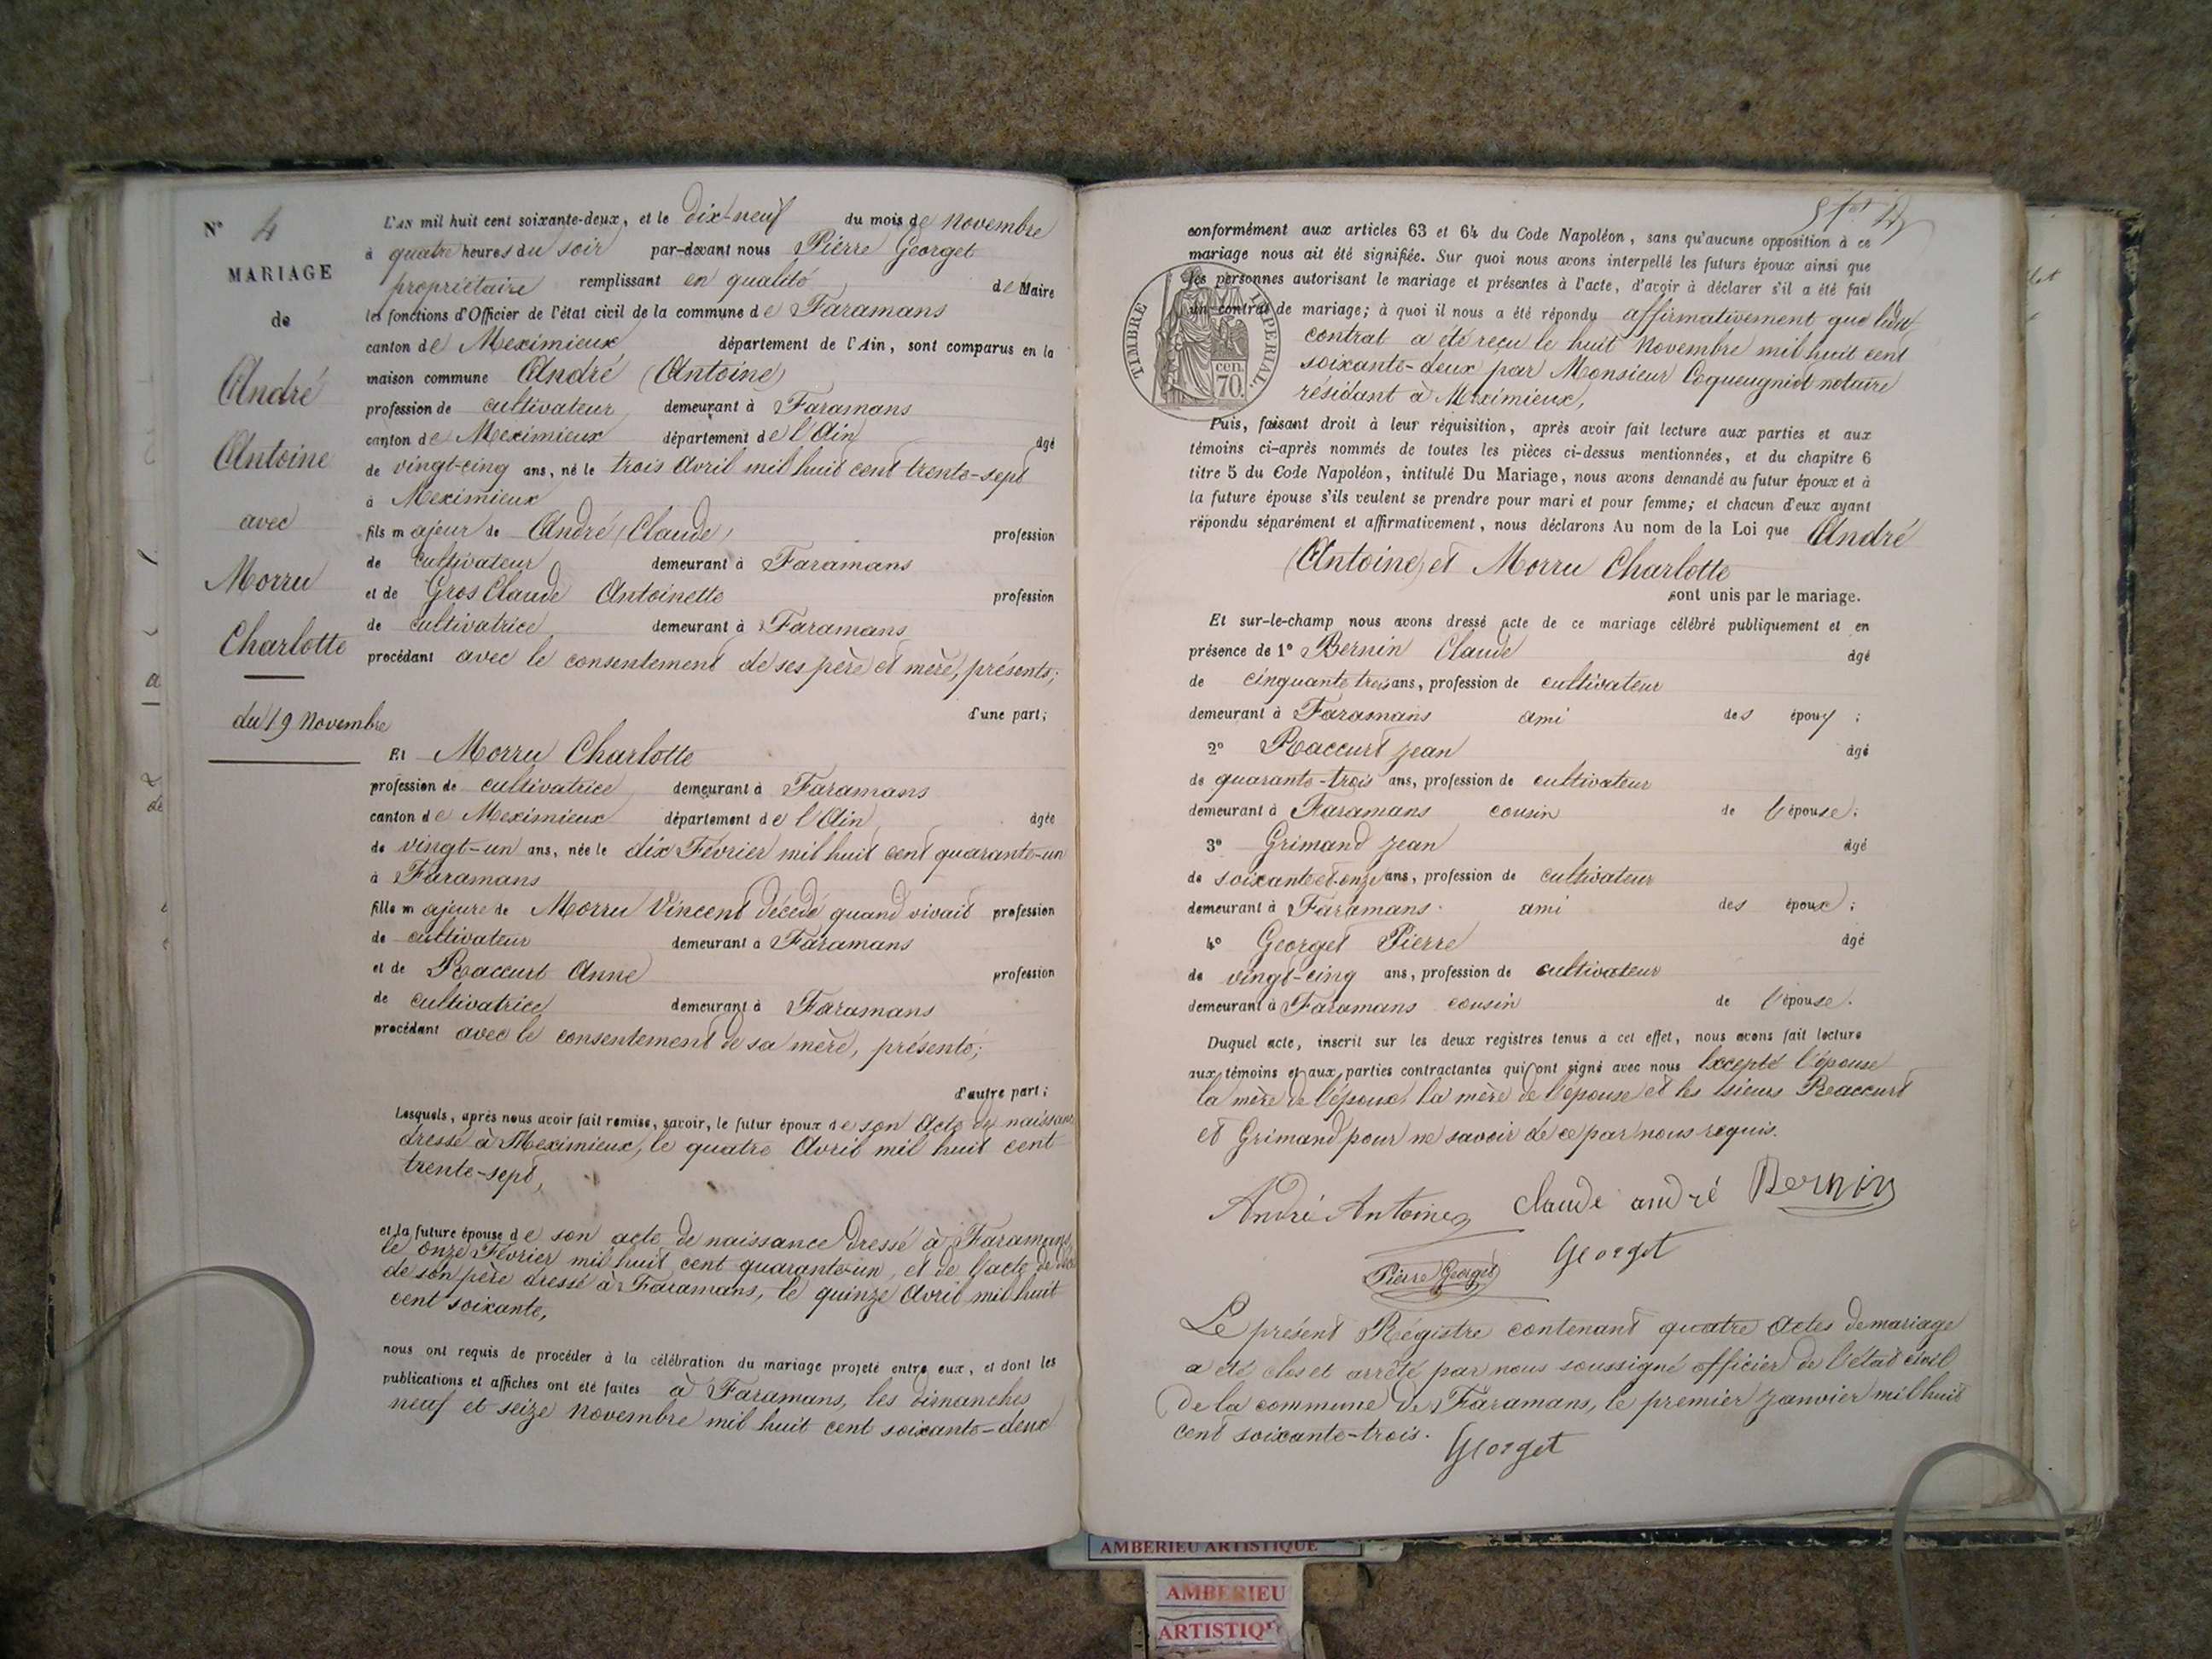 N° 4
MARIAGE
de
André
Antoine
avec
Morru
Charlotte
du 19 Novembre
L'AN mil huit cent soixante-deux, et le dix-neuf du mois de novembre
à quatre heures du soir par-devant nous Pierre Georget
propriétaire remplissant en qualité de Maire
les fonctions d'Officier de l'état civil de la commune de Faramans
canton de Meximieux département de l'Ain, sont comparus en la
maison commune André (Antoine)
profession de cultivateur demeurant à Faramans
canton de Meximieux département de l'Ain âgé
de vingt-cinq ans, né le trois avril mil huit cent trente-sept
à Meximieux
fils majeur de André (Claude) profession
de cultivateur demeurant à Faramans
et de Gros Claude Antoinette profession
de cultivatrice demeurant à Faramans
procédant avec le consentement de ses père et mère, présents;
d'une part;
Et Morru Charlotte
profession de cultivatrice demeurant à Faramans
canton de Meximieux département de l'Ain âgée
de vingt-un ans, née le dix Février mil huit cent quarante-un
à Faramans
fille majeure de Morru Vincent décédé quand vivait profession
de cultivateur demeurant à Faramans
et de Raccurt Anne profession
de cultivatrice demeurant à Faramans
procédant avec le consentement de sa mère, présente;
d'autre part;
Lesquels, après nous avoir fait remise, savoir, le futur époux de son acte de naissance
dressé à Meximieux, le quatre Avril mil huit cent
trente-sept,
et la future épouse de son acte de naissance dressé à Faramans
le onze Février mil huit cent quarante-un, et de l'acte de
de son père dressé à Faramans, le quinze Avril mil huit
cent soixante,
nous ont requis de procéder à la célébration du mariage projeté entre eux, et dont les
publications et affiches ont été faites à Faramans, les dimanches
neuf et seize Novembre mil huit cent soixante-deux
conformément aux articles 63 et 64 du Code Napoléon, sans qu'aucune opposition à ce
mariage nous ait été signifiée. Sur quoi nous avons interpellé les futurs époux ainsi que
les personnes autorisant le mariage et présentes à l'acte, d'avoir à déclarer s'il a été fait
un contrat de mariage; à quoi il nous a été répondu affirmativement que ledit
contrat a été reçu le huit Novembre mil huit cent
soixante-deux par Monsieur Coqueugniot notaire
résidant à Meximieux,
TIMBRE IMPÉRIAL
cen.
70.
Puis, faisant droit à leur réquisition, après avoir fait lecture aux parties et aux
témoins ci-après nommés de toutes les pièces ci-dessus mentionnées, et du chapitre 6
titre 5 du Code Napoléon, intitulé Du Mariage, nous avons demandé au futur époux et à
la future épouse s'ils veulent se prendre pour mari et pour femme; et chacun d'eux ayant
répondu séparément et affirmativement, nous déclarons Au nom de la Loi que André
(Antoine) et Morru Charlotte
sont unis par le mariage.
Et sur-le-champ nous avons dressé acte de ce mariage célébré publiquement et en
présence de 1° Bernin Claude âgé
de cinquante trois ans, profession de cultivateur
demeurant à Faramans ami des époux;
2° Raccurt Jean âgé
de quarante-trois ans, profession de cultivateur
demeurant à Faramans cousin de l'épouse;
3° Grimand Jean âgé
de soixante et onze ans, profession de cultivateur
demeurant à Faramans ami des époux;
4° Georget Pierre âgé
de vingt-cinq ans, profession de cultivateur
demeurant à Faramans cousin de l'épouse.
Duquel acte, inscrit sur les deux registres tenus à cet effet, nous avons fait lecture
aux témoins et aux parties contractantes qui ont signé avec nous Excepté l'épouse
la mère de l'époux, la mère de l'épouse et les sieurs Raccurt
et Grimand pour ne savoir de ce par nous requis.
André Antoine Claude andré Bernin
Pierre Georget Georget
Le présent Régistre contenant quatre Actes de mariage
a été clos et arrêté par nous soussigné officier de l'état civil
de la commune de Faramans, le premier Janvier mil huit
cent soixante-trois. Georget
AMBERIEU ARTISTIQUE
AMBERIEU
ARTISTIQUE